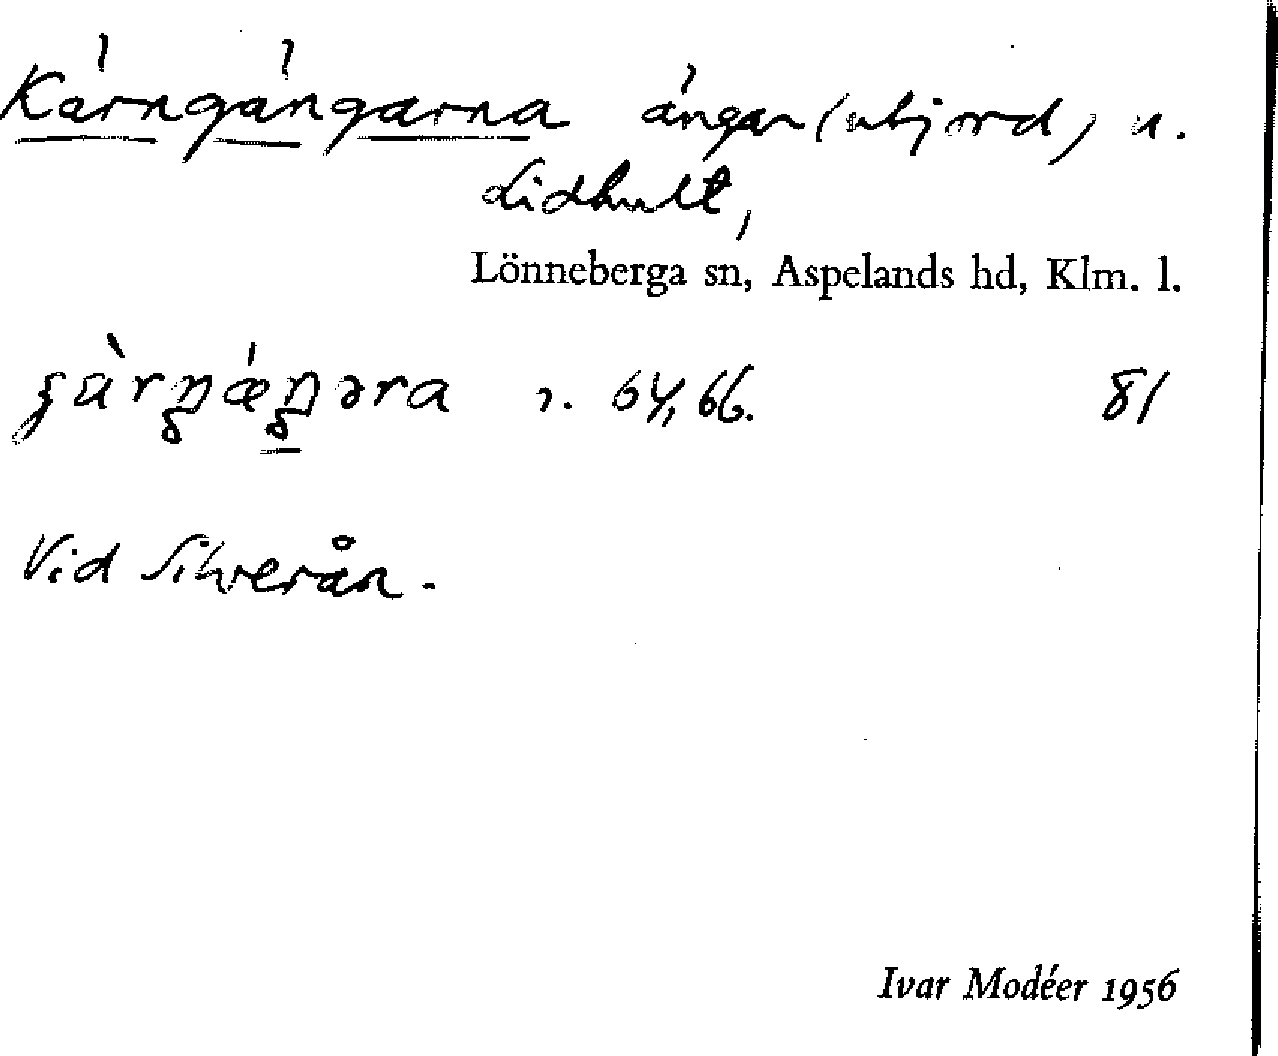 Kärngängarna ängar (utjord) u.
Lidhult,
Lönneberga sn, Aspelands hd, Klm. l.
r. 64, 66. 81
Vid Silverån.
Ivar Modéer 1956